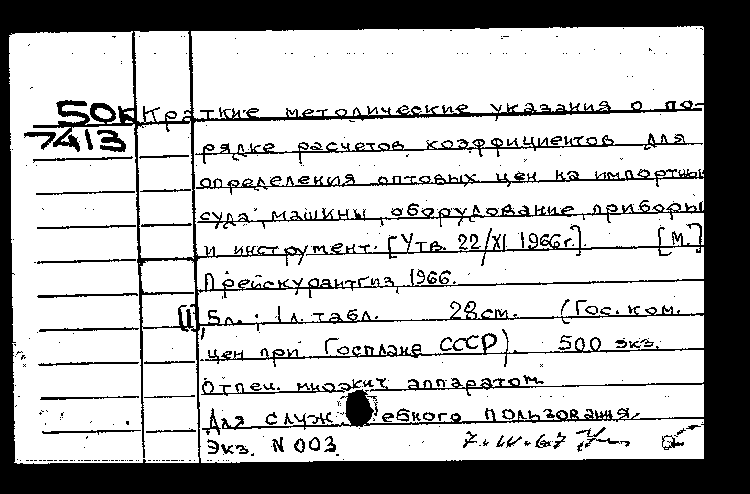 50к Краткие методические указания о по-
7413 рядке расчетов коэффициентов для
определения оптовых цен на импортные
суда, машины, оборудование, приборы
и инструмент. [Утв. 22/XI 1966г.]. [М.]
Прейскурантгиз, 1966.
[1], 5л.; 1л. табл. 28cm. (Гос. ком.
цен при Госплане СССР). 500 экз.
Отпеч. множит. аппаратом.
Для служебного пользования.
Экз. N 003